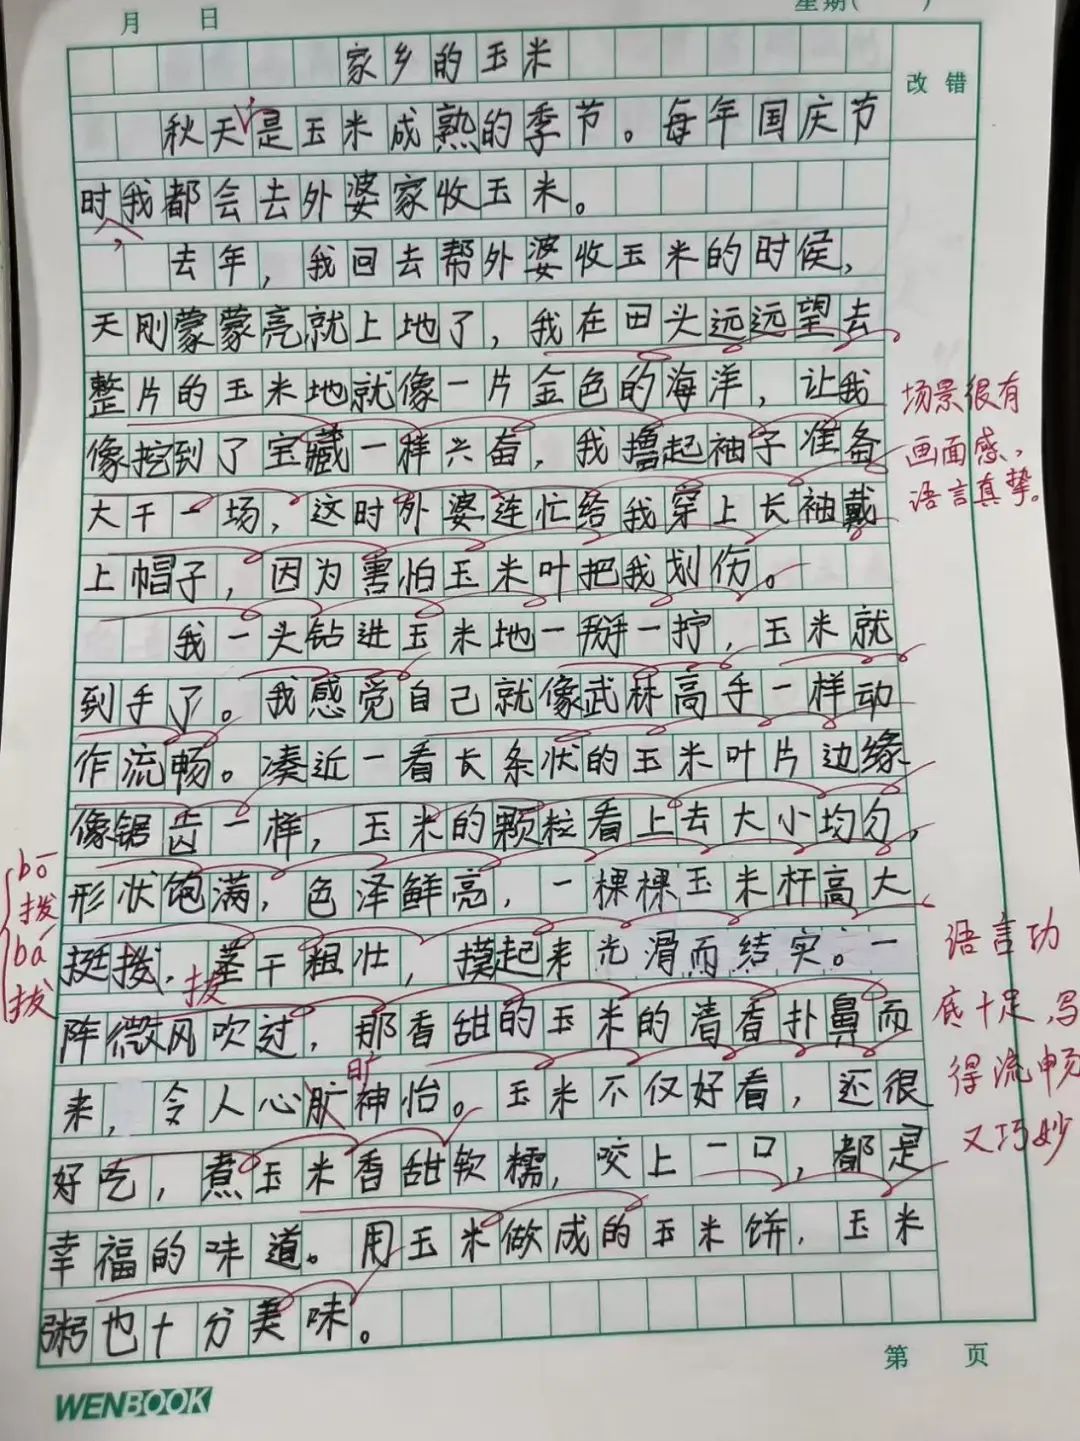 月 日 星期( )
家乡的玉米
改错
秋天是玉米成熟的季节。每年国庆节
时我都会去外婆家收玉米。
，
去年，我回去帮外婆收玉米的时侯，
天刚蒙蒙亮就上地了，我在田头远远望去
整片的玉米地就像一片金色的海洋，让我
像挖到了宝藏一样兴奋，我撸起袖子准备
大干一场，这时外婆连忙给我穿上长袖戴
上帽子，因为害怕玉米叶把我划伤。
场景很有
画面感，
语言真挚。
我一头钻进玉米地一掰一拧，玉米就
到手了。我感觉自己就像武林高手一样动
作流畅。凑近一看长条状的玉米叶片边缘
像锯齿一样，玉米的颗粒看上去大小均匀，
形状饱满，色泽鲜亮，一棵棵玉米杆高大
挺拨，茎干粗壮，摸起来光滑而结实。一
拔
bō
拨
bá
拔
阵微风吹过，那香甜的玉米的清香扑鼻而
来，令人心肮神怡。玉米不仅好看，还很
旷
好吃，煮玉米香甜软糯，咬上一口，都是
幸福的味道。用玉米做成的玉米饼，玉米
粥也十分美味。
语言功
底十足，写
得流畅
又巧妙
第 页
WENBOOK